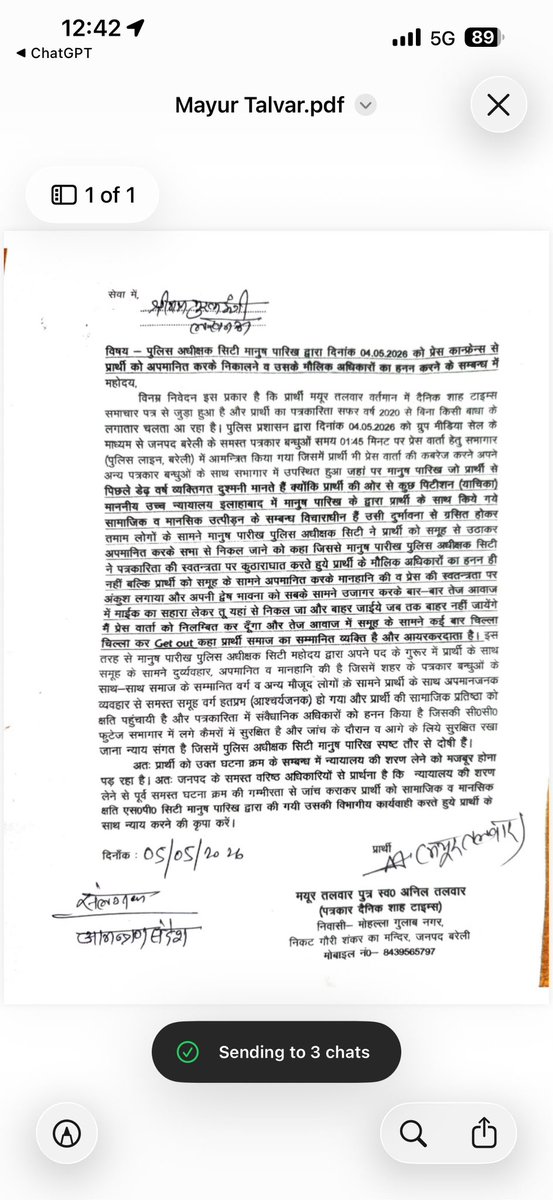 12:42
5G 89
◄ ChatGPT
Mayur Talvar.pdf
1 of 1
सेवा में,
विषय – पुलिस अधीक्षक सिटी मानुष पारिख द्वारा दिनांक 04.05.2026 को प्रेस कान्फ्रेन्स से
प्रार्थी को अपमानित करके निकालने व उसके मौलिक अधिकारों का हनन करने के सम्बन्ध में
महोदय,
विनम्र निवेदन इस प्रकार है कि प्रार्थी मयूर तलवार वर्तमान में दैनिक शाह टाइम्स
समाचार पत्र से जुड़ा हुआ है और प्रार्थी का पत्रकारिता सफर वर्ष 2020 से बिना किसी बाधा के
लगातार चलता आ रहा है। पुलिस प्रशासन द्वारा दिनांक 04.05.2026 को ग्रुप मीडिया सेल के
माध्यम से जनपद बरेली के समस्त पत्रकार बन्धुओं समय 01:45 मिनट पर प्रेस वार्ता हेतु सभागार
(पुलिस लाइन, बरेली) में आमन्त्रित किया गया जिसमें प्रार्थी भी प्रेस वार्ता की कबरेज करने अपने
अन्य पत्रकार बन्धुओं के साथ सभागार में उपस्थित हुआ जहां पर मानुष पारिख जो प्रार्थी से
पिछले डेढ़ वर्ष व्यक्तिगत दुश्मनी मानते हैं क्योंकि प्रार्थी की ओर से कुछ पिटीशन (याचिका)
माननीय उच्च न्यायालय इलाहाबाद में मानुष पारिख के द्वारा प्रार्थी के साथ किये गये
सामाजिक व मानसिक उत्पीड़न के सम्बन्ध विचाराधीन हैं उसी दुर्भावना से ग्रसित होकर
तमाम लोगों के सामने मानुष पारीख पुलिस अधीक्षक सिटी ने प्रार्थी को समूह से उठाकर
अपमानित करके सभा से निकल जाने को कहा जिससे मानुष पारीख पुलिस अधीक्षक सिटी
ने पत्रकारिता की स्वतन्त्रता पर कुठाराघात करते हुये प्रार्थी के मौलिक अधिकारों का हनन ही
नहीं बल्कि प्रार्थी को समूह के सामने अपमानित करके मानहानि की व प्रेस की स्वतन्त्रता पर
अंकुश लगाया और अपनी द्वेष भावना को सबके सामने उजागर करके बार–बार तेज आवाज
में माईक का सहारा लेकर तू यहां से निकल जा और बाहर जाईये जब तक बाहर नहीं जायेंगे
मैं प्रेस वार्ता को निलम्बित कर दूँगा और तेज आवाज में समूह के सामने कई बार चिल्ला
चिल्ला कर Get out कहा प्रार्थी समाज का सम्मानित व्यक्ति है और आयरकरदाता है। इस
तरह से मानुष पारीख पुलिस अधीक्षक सिटी महोदय द्वारा अपने पद के गुरूर में प्रार्थी के साथ
समूह के सामने दुर्व्यवहार, अपमानित व मानहानि की है जिसमें शहर के पत्रकार बन्धुओं के
साथ–साथ समाज के सम्मानित वर्ग व अन्य मौजूद लोगों के सामने प्रार्थी के साथ अपमानजनक
व्यवहार से समस्त समूह वर्ग हतप्रभ (आश्चर्यजनक) हो गया और प्रार्थी की सामाजिक प्रतिष्ठा को
क्षति पहुंचायी है और पत्रकारिता में संवैधानिक अधिकारों को हनन किया है जिसकी सी०सी०
फुटेज सभागार में लगे कैमरों में सुरक्षित है और जांच के दौरान व आगे के लिये सुरक्षित रखा
जाना न्याय संगत है जिसमें पुलिस अधीक्षक सिटी मानुष पारिख स्पष्ट तौर से दोषी हैं।
अतः प्रार्थी को उक्त घटना क्रम के सम्बन्ध में न्यायालय की शरण लेने को मजबूर होना
पड़ रहा है। अतः जनपद के समस्त वरिष्ठ अधिकारियों से प्रार्थना है कि न्यायालय की शरण
लेने से पूर्व समस्त घटना क्रम की गम्मीरता से जांच कराकर प्रार्थी को सामाजिक व मानसिक
क्षति एस०पी० सिटी मानुष पारिख द्वारा की गयी उसकी विभागीय कार्यवाही करते हुये प्रार्थी के
साथ न्याय करने की कृपा करें।
दिनाँक : 05/05/2026
प्रार्थी
(मयूर तलवार)
मयूर तलवार पुत्र स्व० अनिल तलवार
(पत्रकार दैनिक शाह टाइम्स)
निवासी– मोहल्ला गुलाब नगर,
निकट गौरी शंकर का मन्दिर, जनपद बरेली
मोबाइल नं0– 8439565797
संलग्नक
आमन्त्रण संदेश
Sending to 3 chats